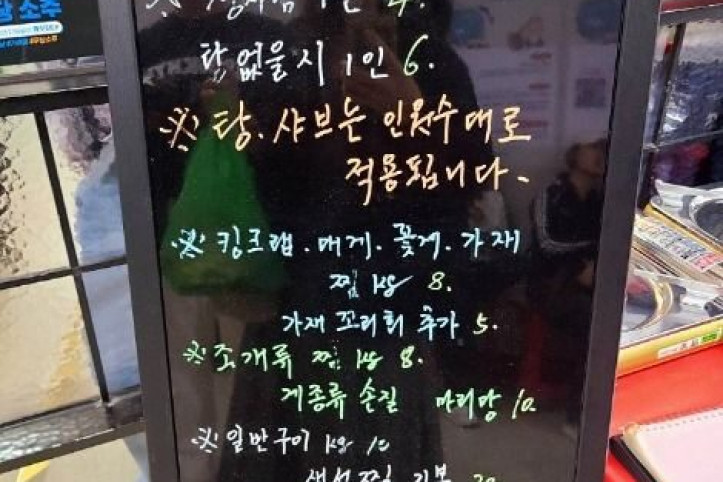 탕 없을시 1인 6.
※ 탕. 샤브는 인원수대로
적용됩니다~
※ 킹크랩. 대게. 꽃게. 가재
찜 kg 8.
가재 꼬리회 추가 5.
※ 조개류 찜 kg 8.
게종류 손질 마리당 10
※ 일반구이 kg 10
생선찜 기본